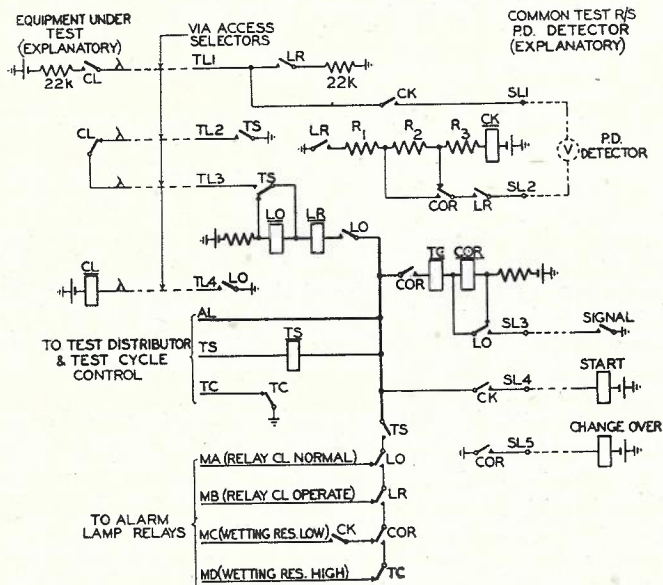 EQUIPMENT UNDER
TEST
(EXPLANATORY)
VIA ACCESS
SELECTORS
COMMON TEST R/S
P.D. DETECTOR
(EXPLANATORY)
22K
CL
λ
TL1
LR
22K
CK
SL1
CL
λ
TL2
TS
LR
R1
R2
R3
CK
V
P.D.
DETECTOR
λ
TL3
TS
COR
LR
SL2
LO
LR
LO
CL
λ
TL4
LO
COR
TC
COR
AL
LO
SL3
SIGNAL
TO TEST DISTRIBUTOR
& TEST CYCLE
CONTROL
TS
TS
TC
TC
CK
SL4
START
TS
COR
SL5
CHANGE OVER
MA (RELAY CL NORMAL)
LO
MB (RELAY CL OPERATE)
LR
TO ALARM
LAMP RELAYS
MC (WETTING RES. LOW)
CK
COR
MD (WETTING RES. HIGH)
TC